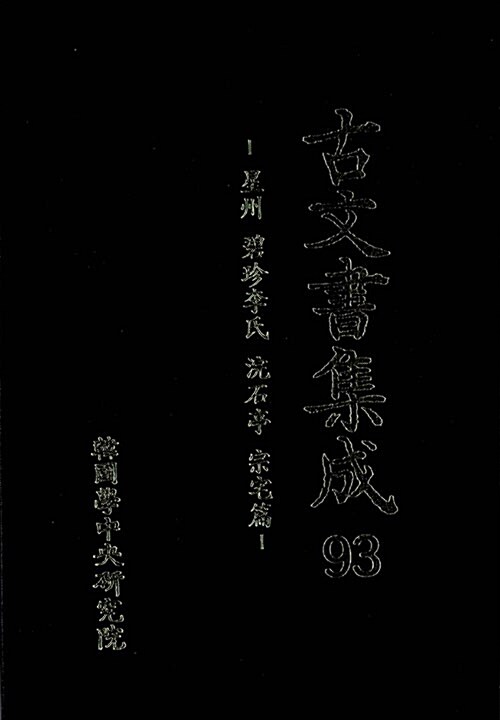 古文書集成 93
- 星州 碧珍李氏 洗石亭 宗宅篇 -
韓國學中央硏究院